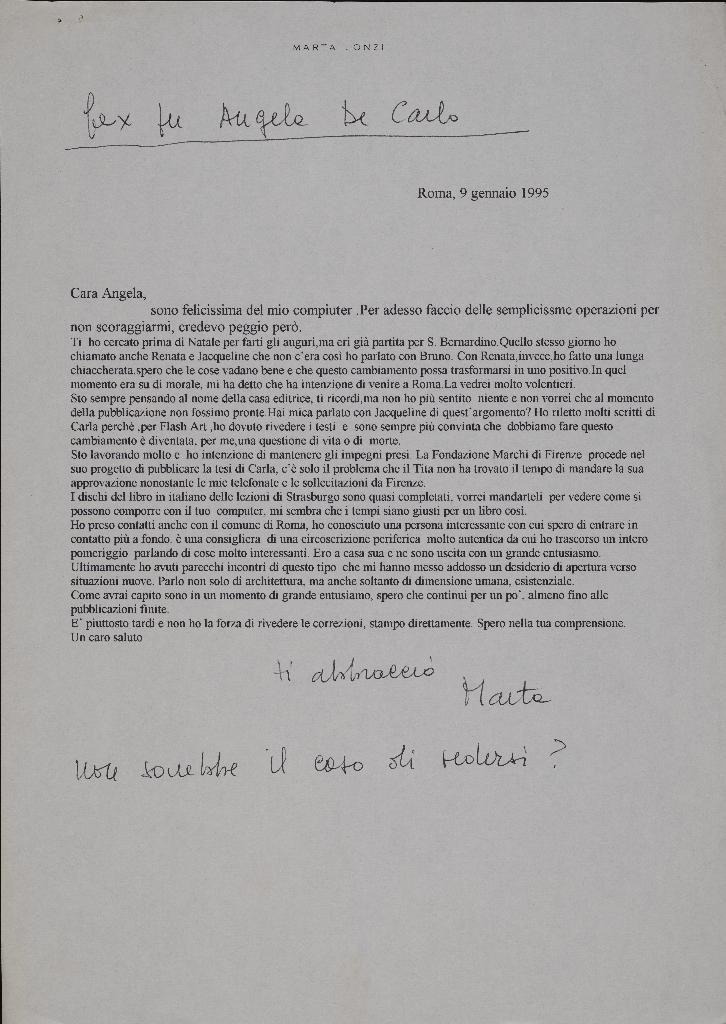 MARTA LONZI
fax per Angela De Carlo
Roma, 9 gennaio 1995
Cara Angela,
sono felicissima del mio compiuter .Per adesso faccio delle semplicissme operazioni per
non scoraggiarmi, credevo peggio però.
Ti ho cercato prima di Natale per farti gli auguri,ma eri già partita per S. Bernardino.Quello stesso giorno ho
chiamato anche Renata e Jacqueline che non c'era così ho parlato con Bruno. Con Renata,invece,ho fatto una lunga
chiaccherata,spero che le cose vadano bene e che questo cambiamento possa trasformarsi in uno positivo.In quel
momento era su di morale, mi ha detto che ha intenzione di venire a Roma.La vedrei molto volentieri.
Sto sempre pensando al nome della casa editrice, ti ricordi,ma non ho più sentito niente e non vorrei che al momento
della pubblicazione non fossimo pronte.Hai mica parlato con Jacqueline di quest'argomento? Ho riletto molti scritti di
Carla perchè ,per Flash Art ,ho dovuto rivedere i testi e sono sempre più convinta che dobbiamo fare questo
cambiamento è diventata, per me,una questione di vita o di morte.
Sto lavorando molto e ho intenzione di mantenere gli impegni presi. La Fondazione Marchi di Firenze procede nel
suo progetto di pubblicare la tesi di Carla, c'è solo il problema che il Tita non ha trovato il tempo di mandare la sua
approvazione nonostante le mie telefonate e le sollecitazioni da Firenze.
I dischi del libro in italiano delle lezioni di Strasburgo sono quasi completati, vorrei mandarteli per vedere come si
possono comporre con il tuo computer, mi sembra che i tempi siano giusti per un libro così.
Ho preso contatti anche con il comune di Roma, ho conosciuto una persona interessante con cui spero di entrare in
contatto più a fondo, è una consigliera di una circoscrizione periferica molto autentica da cui ho trascorso un intero
pomeriggio parlando di cose molto interessanti. Ero a casa sua e ne sono uscita con un grande entusiasmo.
Ultimamente ho avuti parecchi incontri di questo tipo che mi hanno messo addosso un desiderio di apertura verso
situazioni nuove. Parlo non solo di architettura, ma anche soltanto di dimensione umana, esistenziale.
Come avrai capito sono in un momento di grande entusiamo, spero che continui per un po', almeno fino alle
pubblicazioni finite.
E' piuttosto tardi e non ho la forza di rivedere le correzioni, stampo direttamente. Spero nella tua comprensione.
Un caro saluto
ti abbraccio
Marta
non sarebbe il caso di vedersi ?